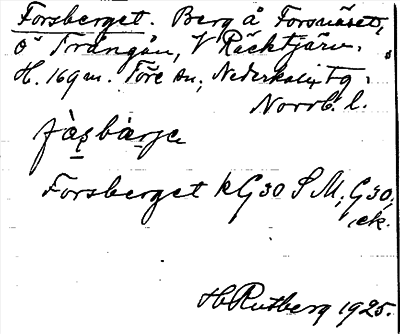 Forsberget. Berg å Forsnäset,
Ö Trångån, V Räcktjärn.
H. 169 m. Töre sn, Nederkalix tg.
Norrb. l.
fàs̱bàrje
Forsberget kG30 S M; G30;
ek.
H Rutberg 1925.